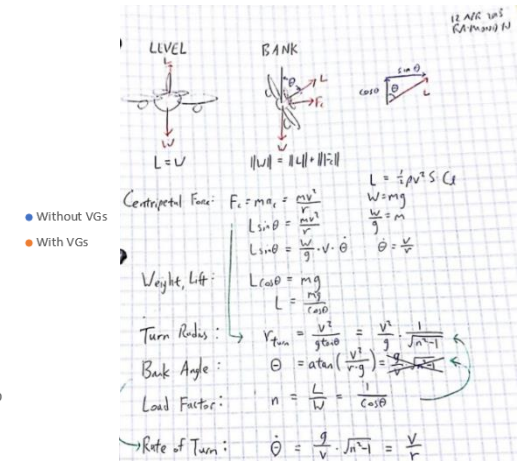 12 APR
RAYMOND N
LEVEL
BANK
L
W
L = W
θ
L
Fc
W
||W|| = ||L|| + ||Fc||
sin θ
cosθ
θ
L
L = ½ρv²S·CL
W=mg
W/g = m
Without VGs
With VGs
Centripetal Force: Fc = mac = mv²/r
L sinθ = mv²/r
L sinθ = W/g · v · θ̇
θ̇ = v/r
Weight, Lift: L cosθ = mg
L = mg/cosθ
Turn Radius: r turn = v²/gtanθ = v²/g · 1/√n²-1
Bank Angle: θ = atan(v²/r·g) =
Load Factor: n = L/W = 1/cosθ
Rate of Turn: θ̇ = g/v · √n²-1 = v/r